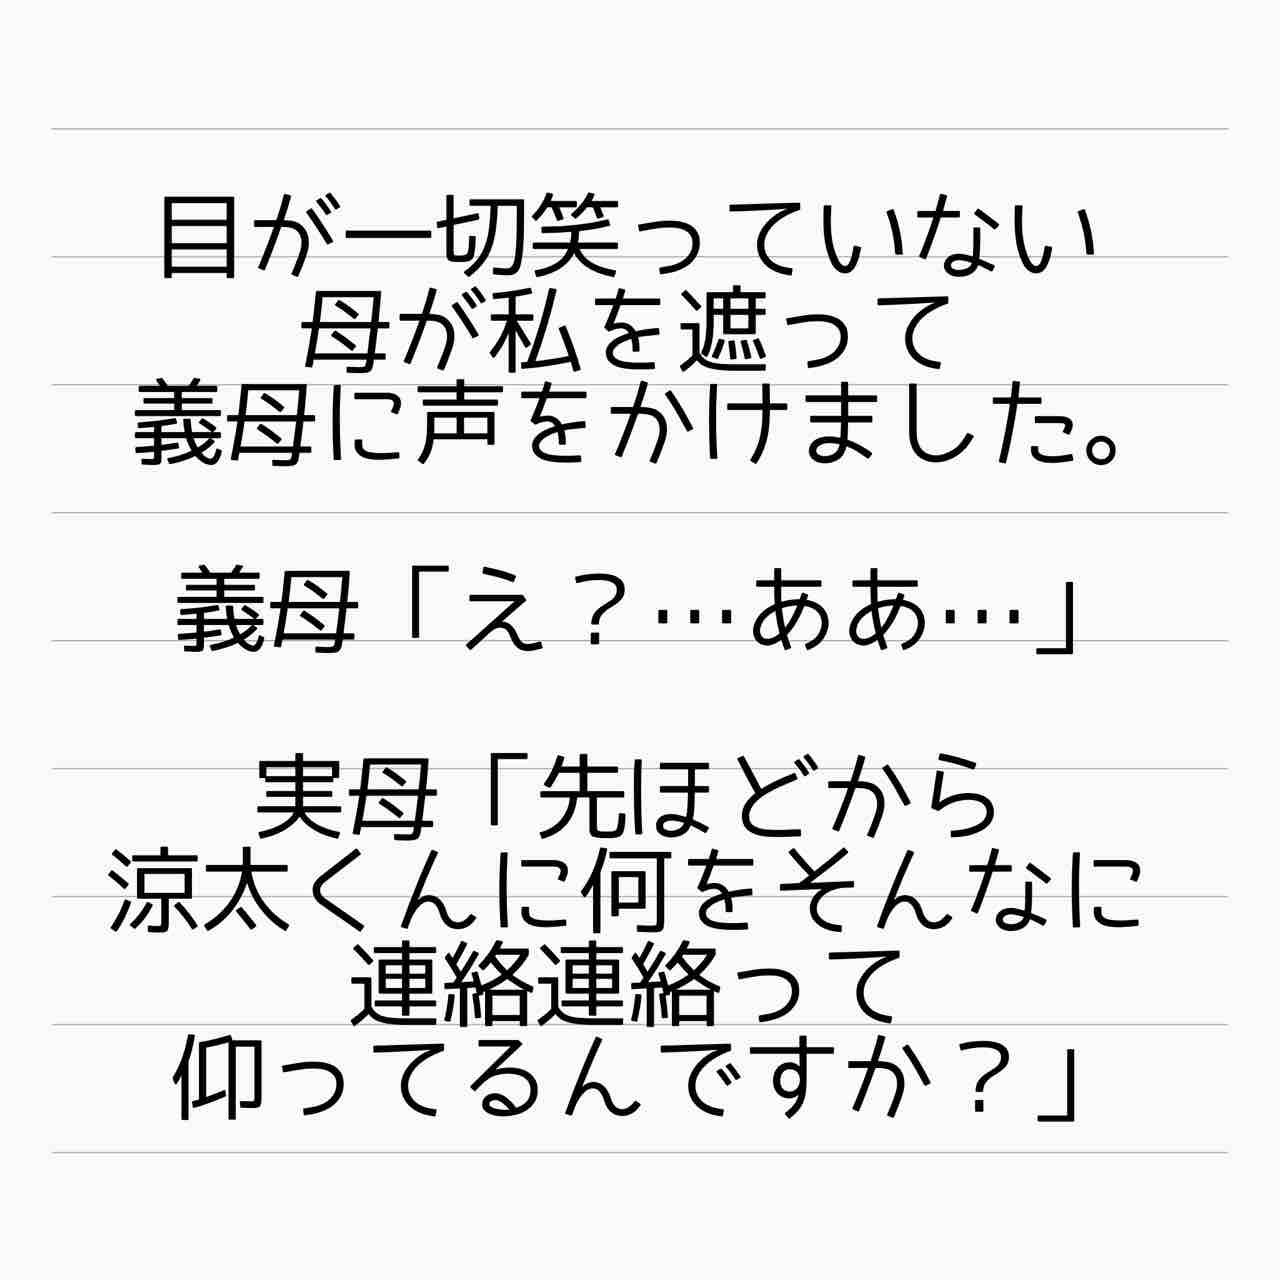 目が一切笑っていない
母が私を遮って
義母に声をかけました。
義母「え？…ああ…」
実母「先ほどから
涼太くんに何をそんなに
連絡連絡って
仰ってるんですか？」